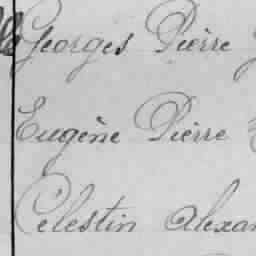 Georges Pierre
Eugène Pierre
Célestin Alexan